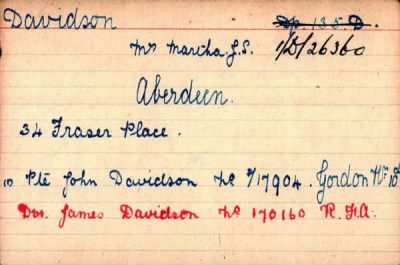 Davidson Dp. 135. D.
Mrs Martha. J.S. 1/D/26360
Aberdeen.
34 Fraser Place.
Pte John Davidson No 17904. Gordon
Dvr. James Davidson No 170160 R.F.A.